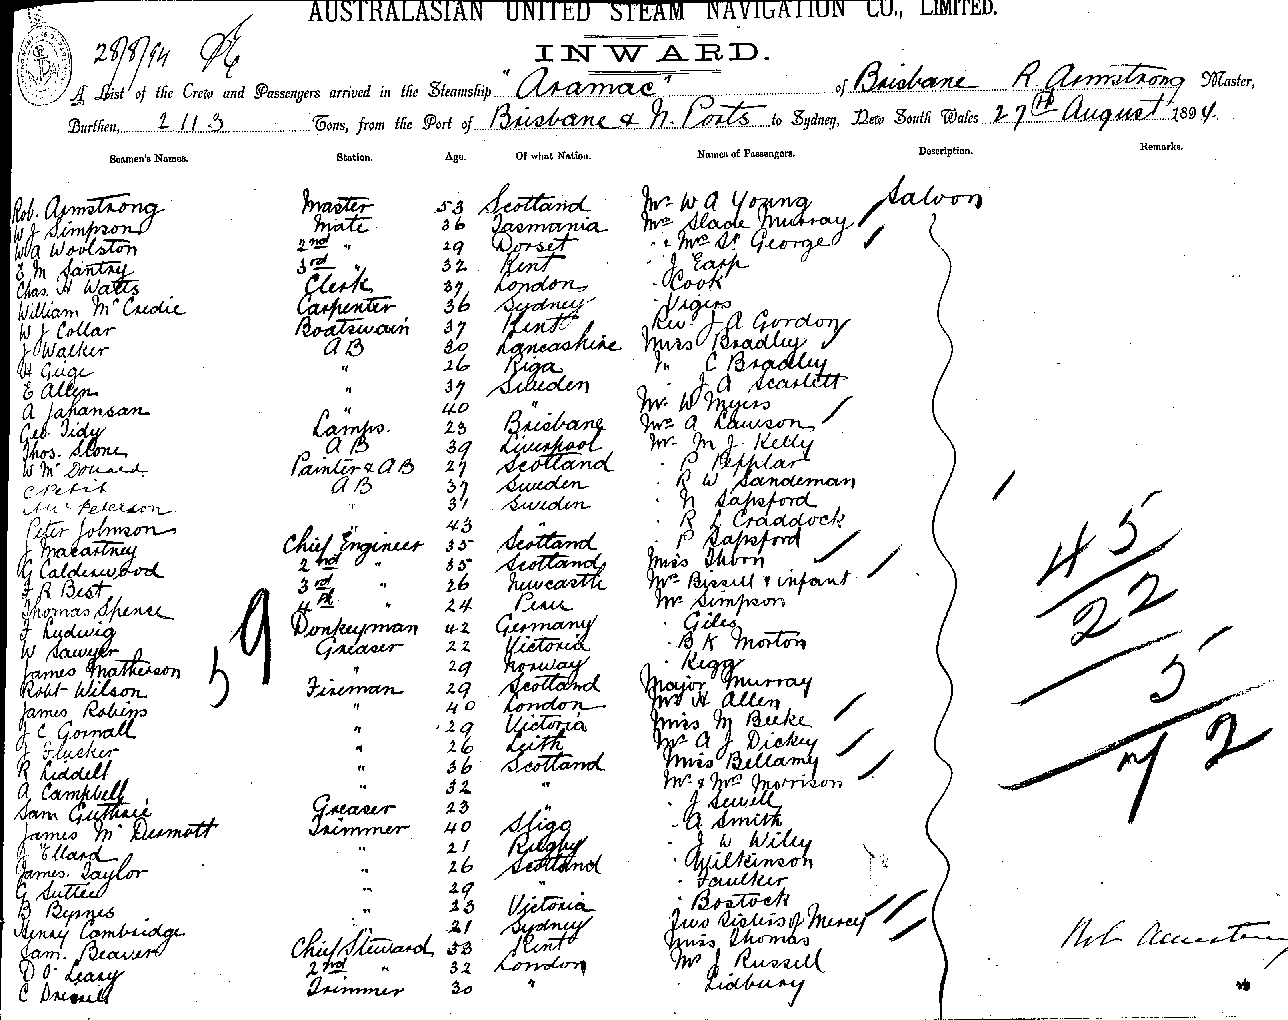 AUSTRALASIAN UNITED STEAM NAVIGATION CO., LIMITED.
28/8/94
INWARD.
A List of the Crew and Passengers arrived in the Steamship "Aramac" of Brisbane R Armstrong Master,
Burthen, 2113 Tons, from the Port of Brisbane & N. Ports to Sydney, New South Wales 27th August 1894.
Seamen's Names. Station. Age. Of what Nation. Names of Passengers. Description. Remarks.
Rob. Armstrong Master 53 Scotland Mr W A Young Saloon
W J Simpson Mate 36 Tasmania Mrs Slade Murray
W A Woolston 2nd " 29 Dorset " & Mrs St George
E M Santry 3rd " 32 Kent " J Earp
Chas. H Watts Clerk 37 London " Cook
William McCredie Carpenter 36 Sydney " Vigers
W J Collar Boatswain 37 Kent Rev. J A Gordon
J Walker A B 30 Lancashire Miss Bradley
H Guge " 26 Riga Mr C Bradley
E Allen " 37 Sweden " J A Scarlett
A Johansan " 40 " Mr W Myers
Geo. Tidy Lamps. 23 Brisbane Mrs A Lawson
Thos. Stone A B 39 Liverpool Mr M J Kelly
W McDonald Painter & A B 27 Scotland " P Pepplar
A B 37 Sweden " R W Sandeman
Peterson " 31 Sweden " N Sapsford
Peter Johnson " 43 " " R L Craddock
J Macartney Chief Engineer 35 Scotland " P Sapsford
G Calderwood 2nd " 35 Scotland Miss Thorn
J R Best 3rd " 26 Newcastle Mrs Bissell & infant
Thomas Spence 4th " 24 Peru Mr Simpson
J Ludwig Donkeyman 42 Germany " Giles
W Sawyer Greaser 22 Victoria " B K Morton
James Matherson " 29 Norway " Rigg
Robt Wilson Fireman 29 Scotland Major Murray
James Robins " 40 London Mrs H Allen
J C Gornall " 29 Victoria Miss M Beeke
J Flucker " 26 Leith Mr A J Dickey
R Liddell " 36 Scotland Miss Bellamy
A Campbell " 32 " Mr & Mrs Morrison
Sam Guthrie Greaser 23 " " J Sewell
James McDermott Trimmer 40 Sligo " A Smith
J Ellard " 21 Rugby " J W Wiley
James Taylor " 26 Scotland " Wilkinson
G Suttee " 29 " " Faulker
B Byrnes " 23 Victoria " Bostock
Henry Cambridge " 21 Sydney Two Sisters of Mercy
Jam. Beaver Chief Steward 53 Kent Miss Thomas
D O'Leary 2nd " 32 London Mr J Russell
C Trimmer 30 " " Lidbury
59
45
22
5
72